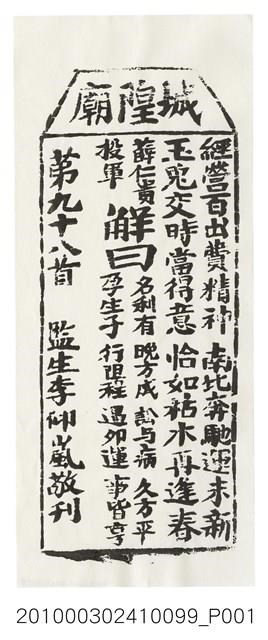 城隍廟
經營百出費精神 南北奔馳運未新
玉兎交時當得意 恰如枯木再逢春
薛仁貴投軍
解曰 名利有 晩方成 訟与病 久方平
孕生子 行阻程 遇卯運 事皆亨
第九十八首 監生李仰嵐敬刊
201000302410099_P001